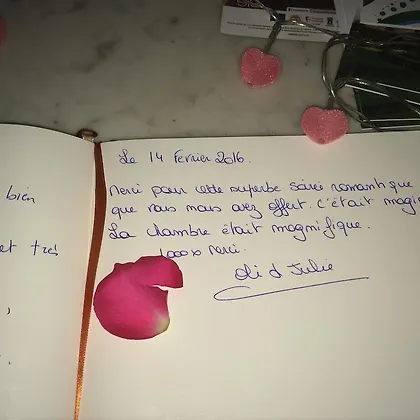 bien
et très
Le 14 Février 2016.
Merci pour cette superbe soirée romantique
que vous nous avez offert. c'était magi
La chambre était magnifique.
1000x merci.
Oli & Julie